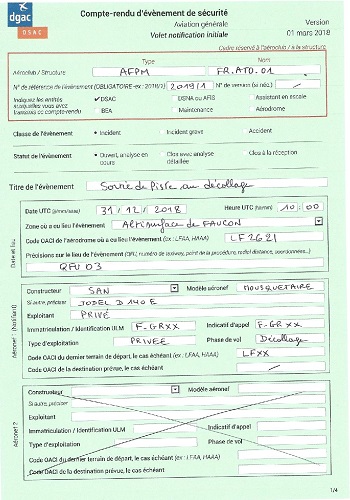 dgac
DSAC
Compte-rendu d'évènement de sécurité
Aviation générale
Volet notification initiale
Version
01 mars 2018
Cadre réservé à l'aéroclub / à la structure
Type
Nom
Aéroclub / Structure AFPM FR.ATO.01
N° de référence de l'évènement (OBLIGATOIRE ex : 2018/1) 2019/1 N° de version (si néc.) /
Indiquez les entités auxquelles vous avez transmis ce compte-rendu
✓DSAC DSNA ou AFIS Assistant en escale
BEA Maintenance Aérodrome
Classe de l'évènement • Incident Incident grave Accident
Statut de l'évènement • Ouvert, analyse en cours Clos avec analyse détaillée Clos à la réception
Titre de l'évènement Sortie de Piste au décollage
Date et lieu
Date UTC (jj/mm/aaaa) 31/12/2018 Heure UTC (hh:mm) 10:00
Zone où a eu lieu l'évènement Altisurface de FAUCON
Code OACI de l'aérodrome où a eu lieu l'évènement (ex : LFAA, HAAA) LF2621
Précisions sur le lieu de l'évènement (QFU, numéro de taxiway, point de la procédure, radial distance, coordonnées...)
QFU 03
Aéronef 1 (Notifiant)
Constructeur SAN Modèle aéronef MOUSQUETAIRE
Si autre, préciser JODEL D 140 E
Exploitant PRIVÉ
Immatriculation / Identification ULM F-GRXX Indicatif d'appel F-GRXX
Type d'exploitation PRIVEE Phase de vol Décollage
Code OACI du dernier terrain de départ, le cas échéant (ex : LFAA, HAAA) LFXX
Code OACI de la destination prévue, le cas échéant /
Aéronef 2
Constructeur Modèle aéronef
Si autre, préciser
Exploitant
Immatriculation / Identification ULM Indicatif d'appel
Type d'exploitation Phase de vol
Code OACI du dernier terrain de départ, le cas échéant (ex : LFAA, HAAA)
Code OACI de la destination prévue, le cas échéant
1/4